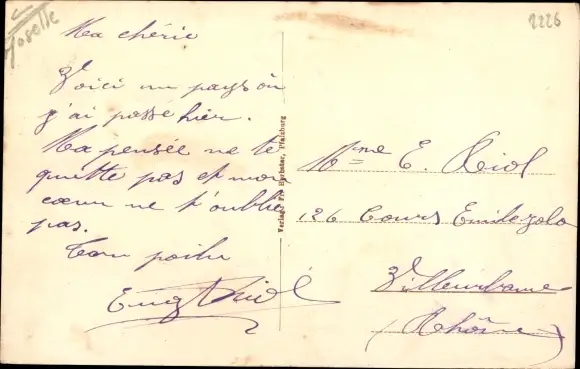 Moselle
2226
Ma chérie
Voici un pays où
j'ai passé hier.
Ma pensée ne te
quitte pas et mon
cœur ne t'oublie
pas.
Ton poilu
Eug Riol
Verlag v. Fr. Herbster, Pfalzburg
Mme E. Riol
126 Cours Emile Zola
Villeurbanne
(Rhône)